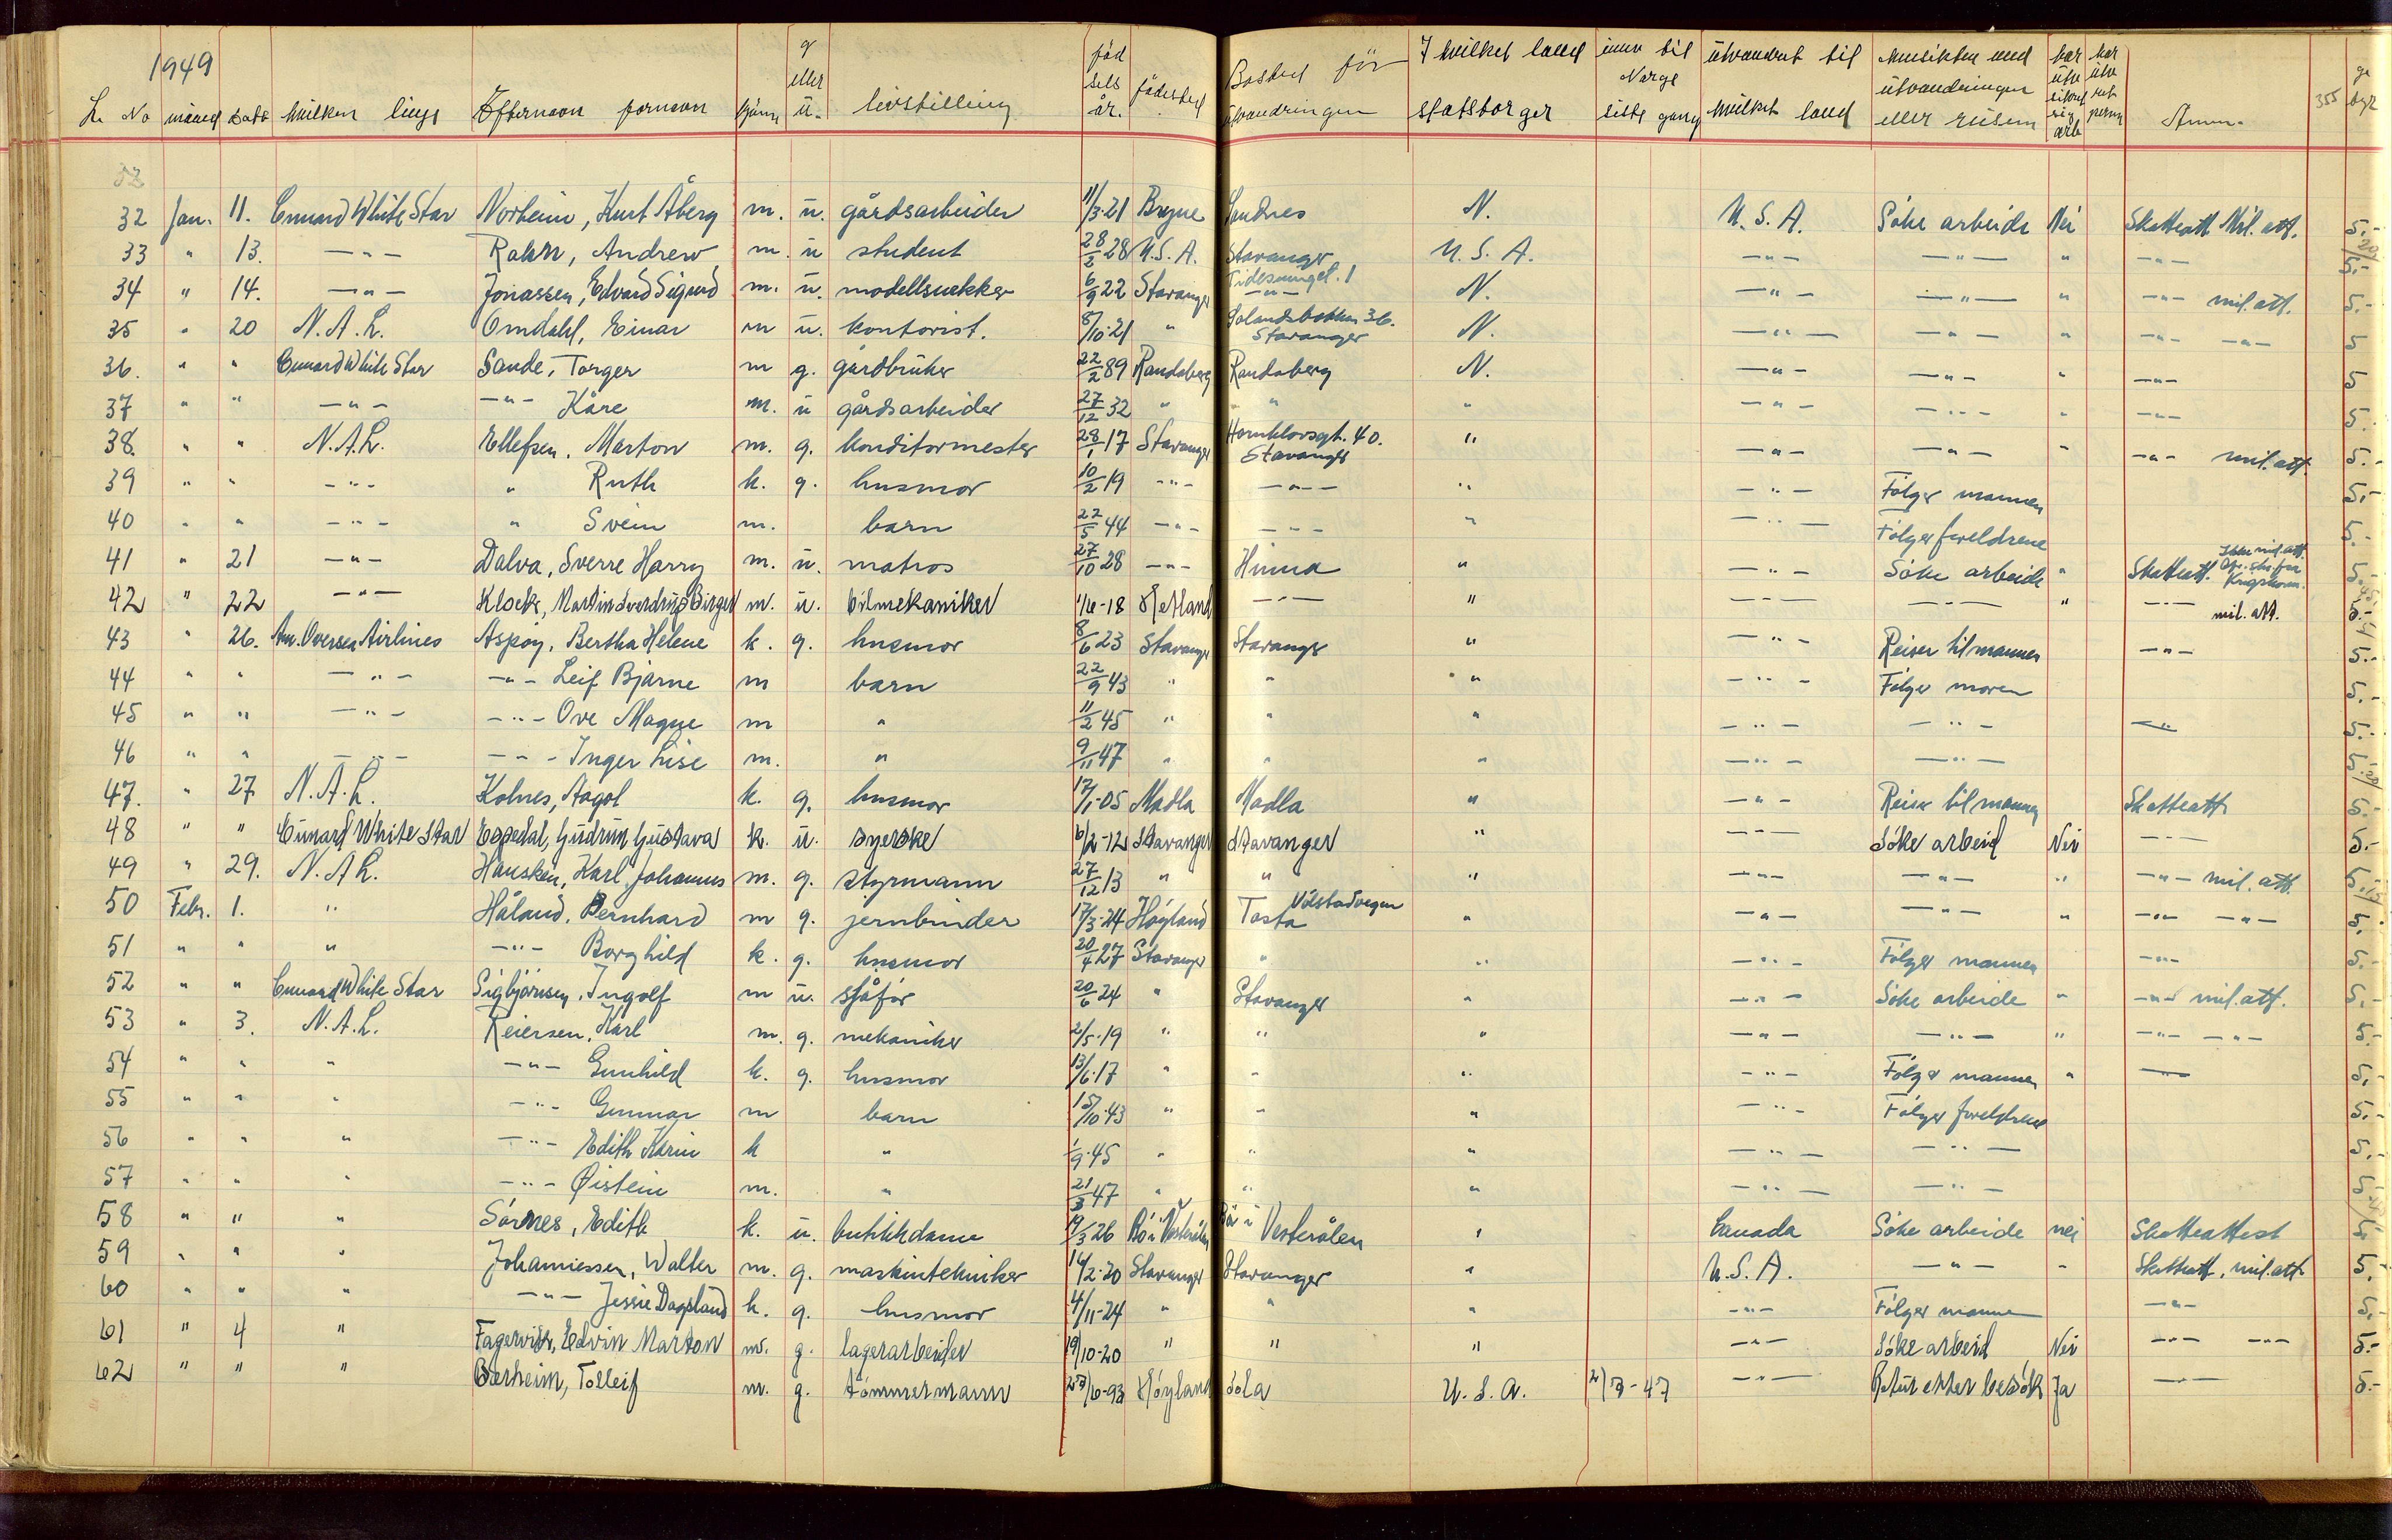 1949
L. No måned dato hvilken linje Efternavn fornavn kjønn g eller u. livstilling fødselsår. fødested Bosted før utvandringen I hvilket land statsborger inn til Norge siste gang utvandret til hvilket land hensikten med utvandringen eller reisen har utv sikret sig arb har utv ret perm Anm. 355 gebyr
32 Jan. 11. Cunard White Star Norheim, Kurt Åberg m. u. gårdsarbeider 11/3-21 Bryne Sandnes N. U.S.A. Söke arbeide Nei Skatteatt. Mil. att. 5.-
33 " 13. -"- Andrew m. u student 28/2 28 U.S.A. Stavanger U.S.A. -"- -"- " -"- 5.-
34 " 14. -"- Jonassen, Edvard Sigurd m. u. modellsnekker 6/9 22 Stavanger -"- N. -"- -"- " -"- mil. att. 5.-
35 " 20 N.A.L. Omdahl, Einar m u. kontorist. 8/10-21 " Solandsbakken 36. Stavanger N. -"- -"- " -"- -"- 5
36. " " Cunard White Star Sande, Torger m g. gårdbruker 22/2 89 Randaberg Randaberg N. -"- -"- " -"- 5
37 " " -"- -"- Kåre m. u gårdsarbeider 27/12 32 " " " -"- -"- " -"- 5.
38. " " N.A.L. Ellefsen, Marton m. g. konditormester 28/1 17 Stavanger Hornklovsgt. 40. Stavanger " -"- -"- " -"- mil. att. 5.-
39 " " -"- " Ruth k. g. husmor 10/2 19 -"- -"- " -"- Følger mannen 5.-
40 " " -"- " Svein m. barn 22/5 44 -"- -"- " -"- Følger foreldrene 5.-
41 " 21 -"- Dalva, Sverre Harry m. u. matros 27/10 28 -"- Hinna " -"- Söke arbeide " Skatteatt. Ikke mil. att. 5.-
42 " 22 -"- Klock, Martin Sverdrup Birger m. u. bilmekaniker 1/6-18 Hetland -"- " -"- -"- " -"- mil. att. 5.-
43 " 26. Am. Oversea Airlines Aspøy, Bertha Helene k. g. husmor 8/6 23 Stavanger Stavanger " -"- Reiser til mannen -"- 5.-
44 " " -"- -"- Leif Bjarne m barn 22/9 43 " " " -"- Følger moren 5.-
45 " " -"- -"- Ove Magne m " 11/2 45 " " " -"- -"- -"- 5.-
46 " " -"- -"- Inger Lise m. " 9/11 47 " " " -"- -"- 5.-
47. " 27 N.A.L. Kolnes, Aagot k. g. husmor 17/1-05 Madla Madla " -"- Reise til mannen Skatteatt 5.-
48 " " Cunard White Star Eggedal, Gudrun Gustava k. u. syerske 6/2-12 Stavanger Stavanger " -"- Söke arbeid Nei -"- 5.-
49 " 29. N.A.L. Hausken, Karl Johannes m. g. styrmann 27/12 13 " " " -"- -"- " -"- mil. att. 5.-
50 Febr. 1. " Håland, Bernhard m g. jernbinder 17/3-24 Høyland Tasta Volstadvegen " -"- -"- " -"- -"- 5.-
51 " " " -"- Borghild k. g. husmor 20/4 27 Stavanger " " -"- Følger mannen -"- 5.-
52 " " Cunard White Star Sigbjörnsen, Ingolf m u. sjåfør 20/6 24 " Stavanger " -"- Söke arbeide " -"- mil. att. 5.-
53 " 3. N.A.L. Reiersen, Karl m. g. mekaniker 2/5-19 " " " -"- -"- " -"- -"- 5.-
54 " " " -"- Gunhild k. g. husmor 13/6-17 " " " -"- Følger mannen " -"- 5.-
55 " " " -"- Gunnar m barn 15/10-43 " " " -"- Følger foreldrene 5.-
56 " " " -"- Edith Karin k " 1/9-45 " " " -"- -"- 5.-
57 " " " -"- Øistein m. " 21/3 47 " " " -"- -"- 5.-
58 " " " Sörnes, Edith k. u. butikkdame 19/3 26 Bö i Vesterålen Bö i Vesterålen " Canada Söke arbeide nei Skatteattest 5
59 " " " Johannessen, Walter m. g. maskintekniker 14/2-20 Stavanger Stavanger " U.S.A. -"- " Skatteatt, mil. att. 5.-
60 " " " -"- Jessie Dagsland k. g. husmor 4/11-24 " " " -"- Følger mannen -"- 5.-
61 " 4 " Fagervik, Edvin Marton m. g. lagerarbeider 19/10-20 " " " -"- Söke arbeid Nei -"- -"- 5.-
62 " " " Bærheim, Tolleif m. g. tömmermann 27/6-93 Høyland Sola U.S.A. 2/7-47 -"- Retur etter besök Ja -"- 5.-